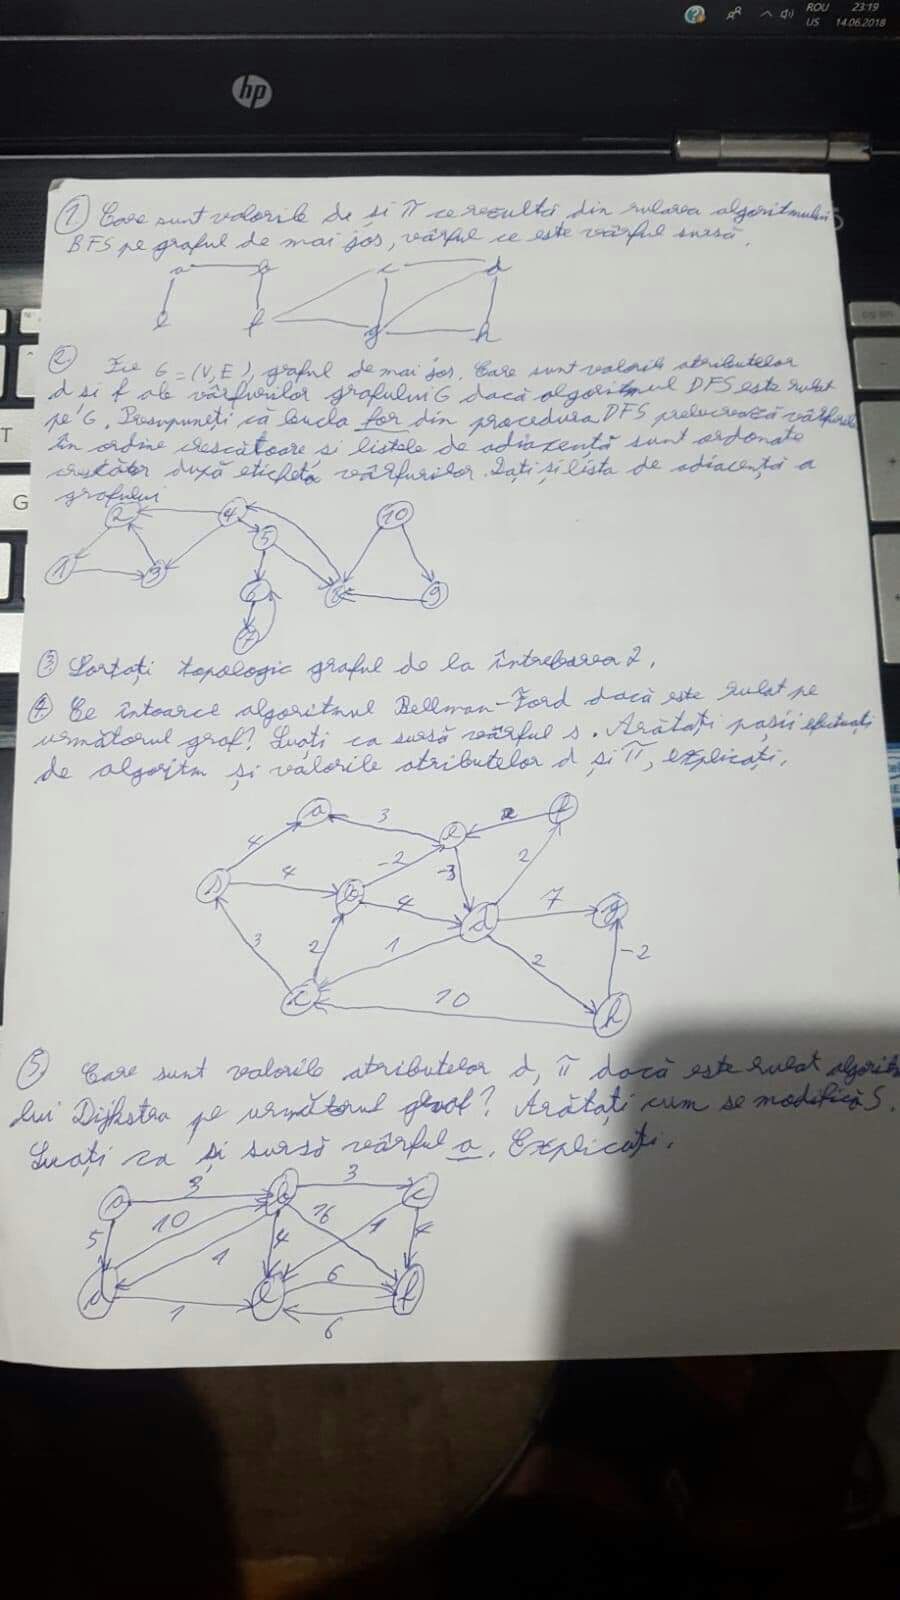 ROU 23:19
US 14.06.2018
hp
1. Care sunt valorile d și π ce rezultă din rularea algoritmului
BFS pe graful de mai jos, vârful c este vârful sursă.
a b c d
e f g h
2. Fie G = (V, E), graful de mai jos. Care sunt valorile atributelor
d și f ale vârfurilor grafului G dacă algoritmul DFS este rulat
pe G. Presupuneți că bucla for din procedura DFS prelucrează vârfurile
în ordine crescătoare și listele de adiacență sunt ordonate
crescător după eticheta vârfurilor. Dați și lista de adiacență a
grafului
2 4 10
5
1 3 6 8 9
7
3. Sortați topologic graful de la întrebarea 2.
4. Ce întoarce algoritmul Bellman-Ford dacă este rulat pe
următorul graf? Luați ca sursă vârful s. Arătați pașii efectuați
de algoritm și valorile atributelor d și π, explicați.
a 3 e f
4 -2 -3 2
s 4 b 4 d 7 g
3 2 1 2 -2
c 10 h
5. Care sunt valorile atributelor d, π dacă este rulat algoritm
lui Dijkstra pe următorul graf? Arătați cum se modifică S.
Luați ca și sursă vârful a. Explicați.
a 3 b 3 c
5 10 1 4 16 1 4
d 1 e 6 f
6